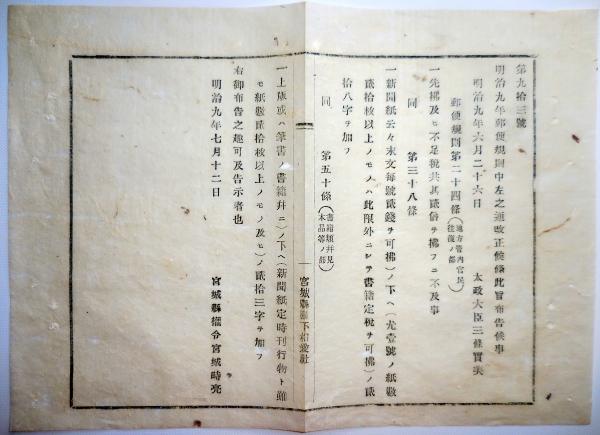 第九拾三號
明治九年郵便規則中左之通改正候條此旨布告候事
明治九年六月二十六日
太政大臣三條實美
郵便規則第二十四條(地方管内官民往復ノ部)
一先拂及ヒ不足税共其貳倍ヲ拂フニ不及事
同 第三十八條
一新聞紙云々末文每號貳錢ヲ可拂)ノ下ヘ(尤壹號ノ紙數
貳拾枚以上ノモノハ此限外ニシテ書籍定税ヲ可拂)ノ貳
拾八字ヲ加フ
同 第五十條(書籍類幷見本品等ノ部)
宮城縣縣下
一上版或ハ筆書ノ書籍幷ニ)ノ下ヘ(新聞紙定時刊行物ト雖
モ紙數貳拾枚以上ノモノ及ヒ)ノ貳拾三字ヲ加フ
右御布告之趣可及告示者也
明治九年七月十二日
宮城縣權令宮城時亮